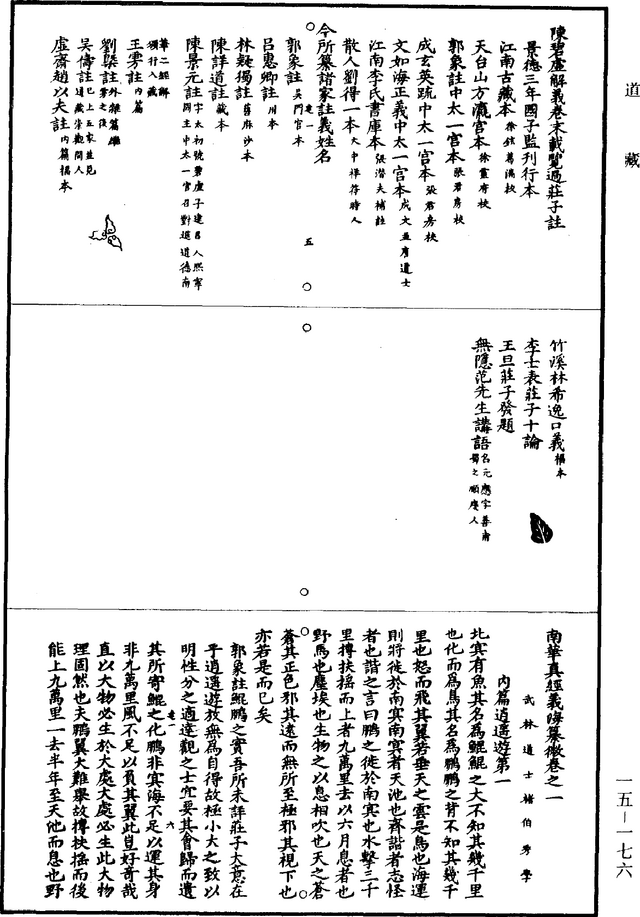 道藏
陳碧虛解義卷末載覽過莊子註
景德三年國子監刊行本
江南古藏本 徐鉉葛湍校
天台山方瀛宮本 徐靈府校
郭象註中太一宮本 張君房校
成玄英疏中太一宮本 張君房校
文如海正義中太一宮本 成文並唐道士
江南李氏書庫本 張潛夫補註
散人劉得一本 大中祥符時人
今所纂諸家註義姓名
郭象註 吳門官本
呂惠卿註 川本
林疑獨註 舊麻沙本
陳詳道註 藏本
陳景元註 字太初號碧虛子建昌人熙寧間主中太一宮召對進道德南
五
華二經解頒行入藏
王雱註 內篇
劉槩註 外雜篇繼雱之後
吳儔註 已上五家並見道藏崇觀間人
虛齋趙以夫註 內篇福本
竹溪林希逸口義 福本
李士表莊子十論
王旦莊子發題
無隱范先生講語 名元應字善甫蜀之順慶人
南華真經義海纂微卷之一
武林道士褚伯秀學
內篇逍遙遊第一
北冥有魚其名為鯤鯤之大不知其幾千里
也化而為鳥其名為鵬鵬之背不知其幾千
里也怒而飛其翼若垂天之雲是鳥也海運
則將徙於南冥南冥者天池也齊諧者志怪
者也諧之言曰鵬之徙於南冥也水擊三千
里摶扶搖而上者九萬里去以六月息者也
野馬也塵埃也生物之以息相吹也天之蒼
蒼其正色邪其遠而無所至極邪其視下也
亦若是而已矣
郭象註鯤鵬之實吾所未詳莊子大意在
乎逍遙遊放無為自得故極小大之致以
明性分之適達觀之士宜要其會歸而遺
六
其所寄鯤之化鵬非冥海不足以運其身
非九萬里風不足以負其翼此豈好奇哉
直以大物必生於大處大處必生此大物
理固然也夫鵬翼大難舉故摶扶搖而後
能上九萬里一去半年至天池而息也野
一五—一七六